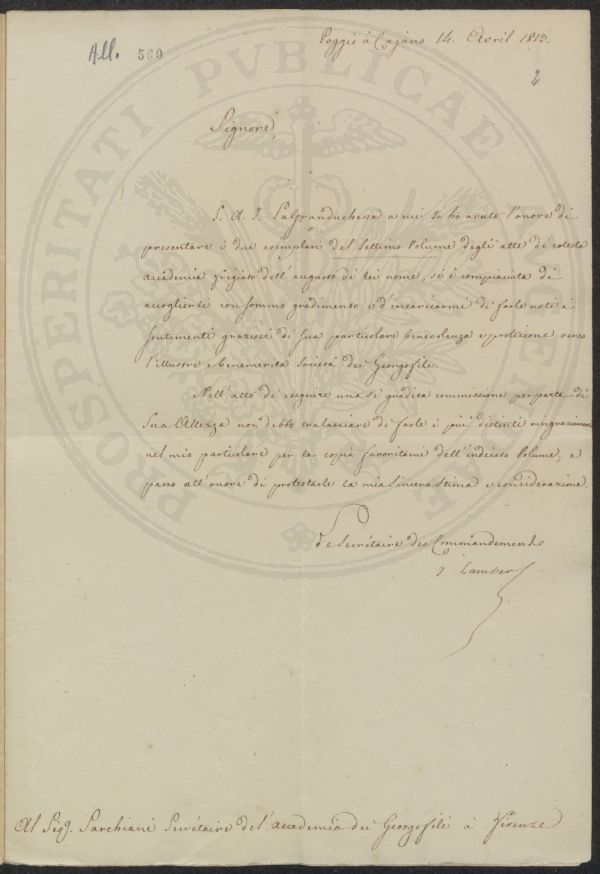 All. 560
Poggio à Cajano 14. Avril 1813.
2
Signore
S. A. I. la Granduchessa a cui io ho avuto l'onore di
presentare i due esemplari del Settimo Volume degli atti di cotesta
accademia fregiato dell'augusto di lei nome, si è compiaciuta di
accoglierli con sommo gradimento e d'incaricarmi di farle noti i
sentimenti graziosi di sua particolare benevolenza e protezione verso
l'illustre e benemerita società dei Georgofili.
Nell'atto di eseguire una sì gradita commissione per parte di
Sua Altezza non debbo tralasciare di farle i più distinti ringraziamenti
nel mio particolare per la copia favoritami dell'indicato Volume, e
passo all'onore di protestarle la mia sincera stima e considerazione.
Le Secrétaire des Commandements
Al Sigr. Sarchiani Secrétaire del'accademia dei Georgofili à Firenze
PROSPERITATI PUBLICAE